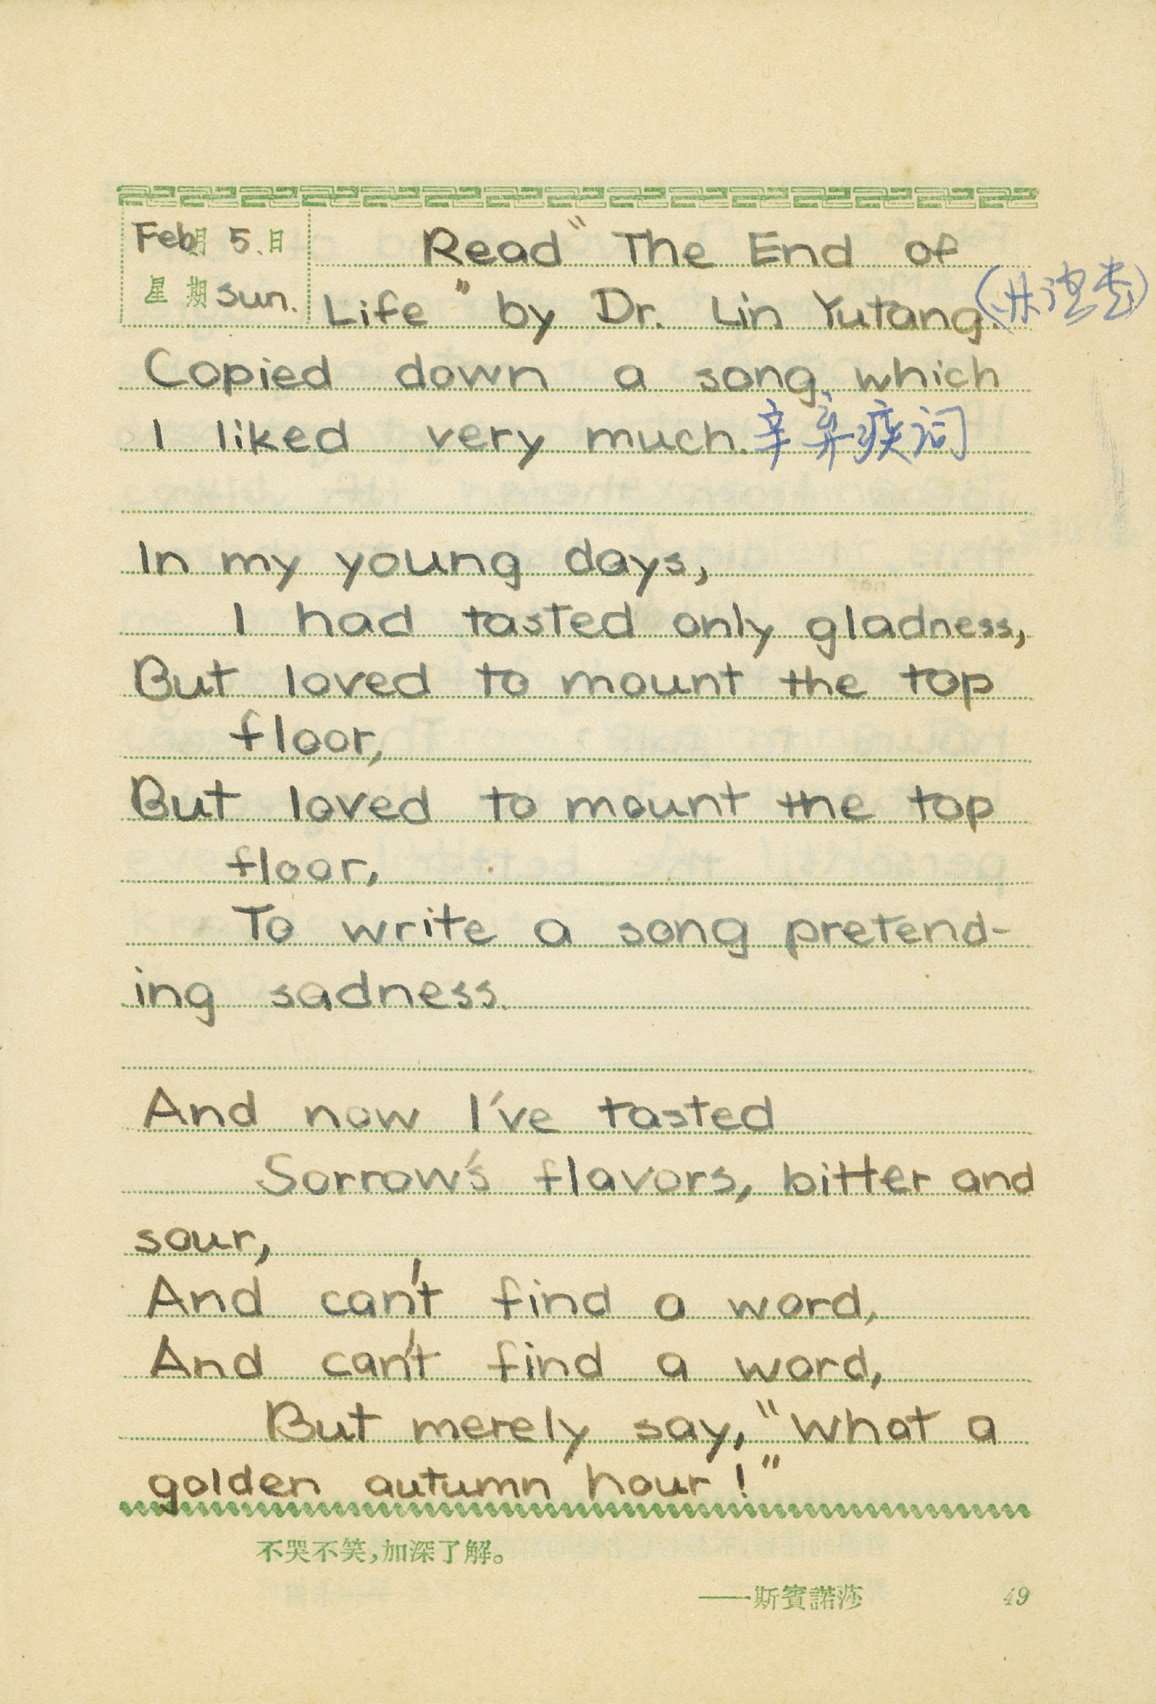 Feb月 5.日
星期 Sun.
Read "The End of
Life" by Dr. Lin Yutang.(林语堂)
Copied down a song which
I liked very much.辛弃疾词
In my young days,
I had tasted only gladness,
But loved to mount the top
floor,
But loved to mount the top
floor,
To write a song pretend-
ing sadness.
And now I've tasted
Sorrow's flavors, bitter and
sour,
And can't find a word,
And can't find a word,
But merely say, "What a
golden autumn hour!"
不哭不笑,加深了解。
——斯賓諾莎
49